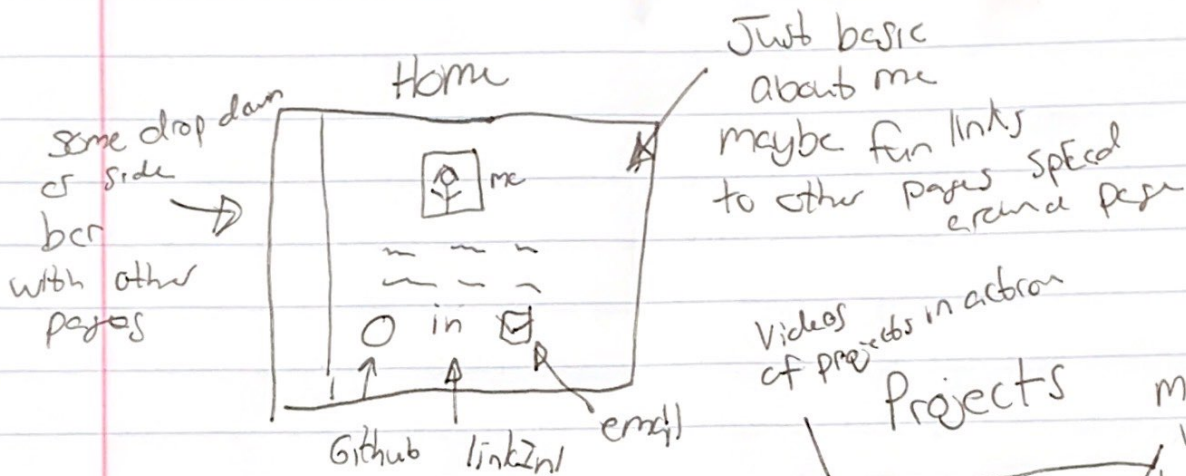 Home
some drop down
or side
bar
with other
pages
me
in
Github
linkInl
email
Just basic
about me
maybe fun links
to other pages spread
around page
Videos
of projects in action
Projects
m